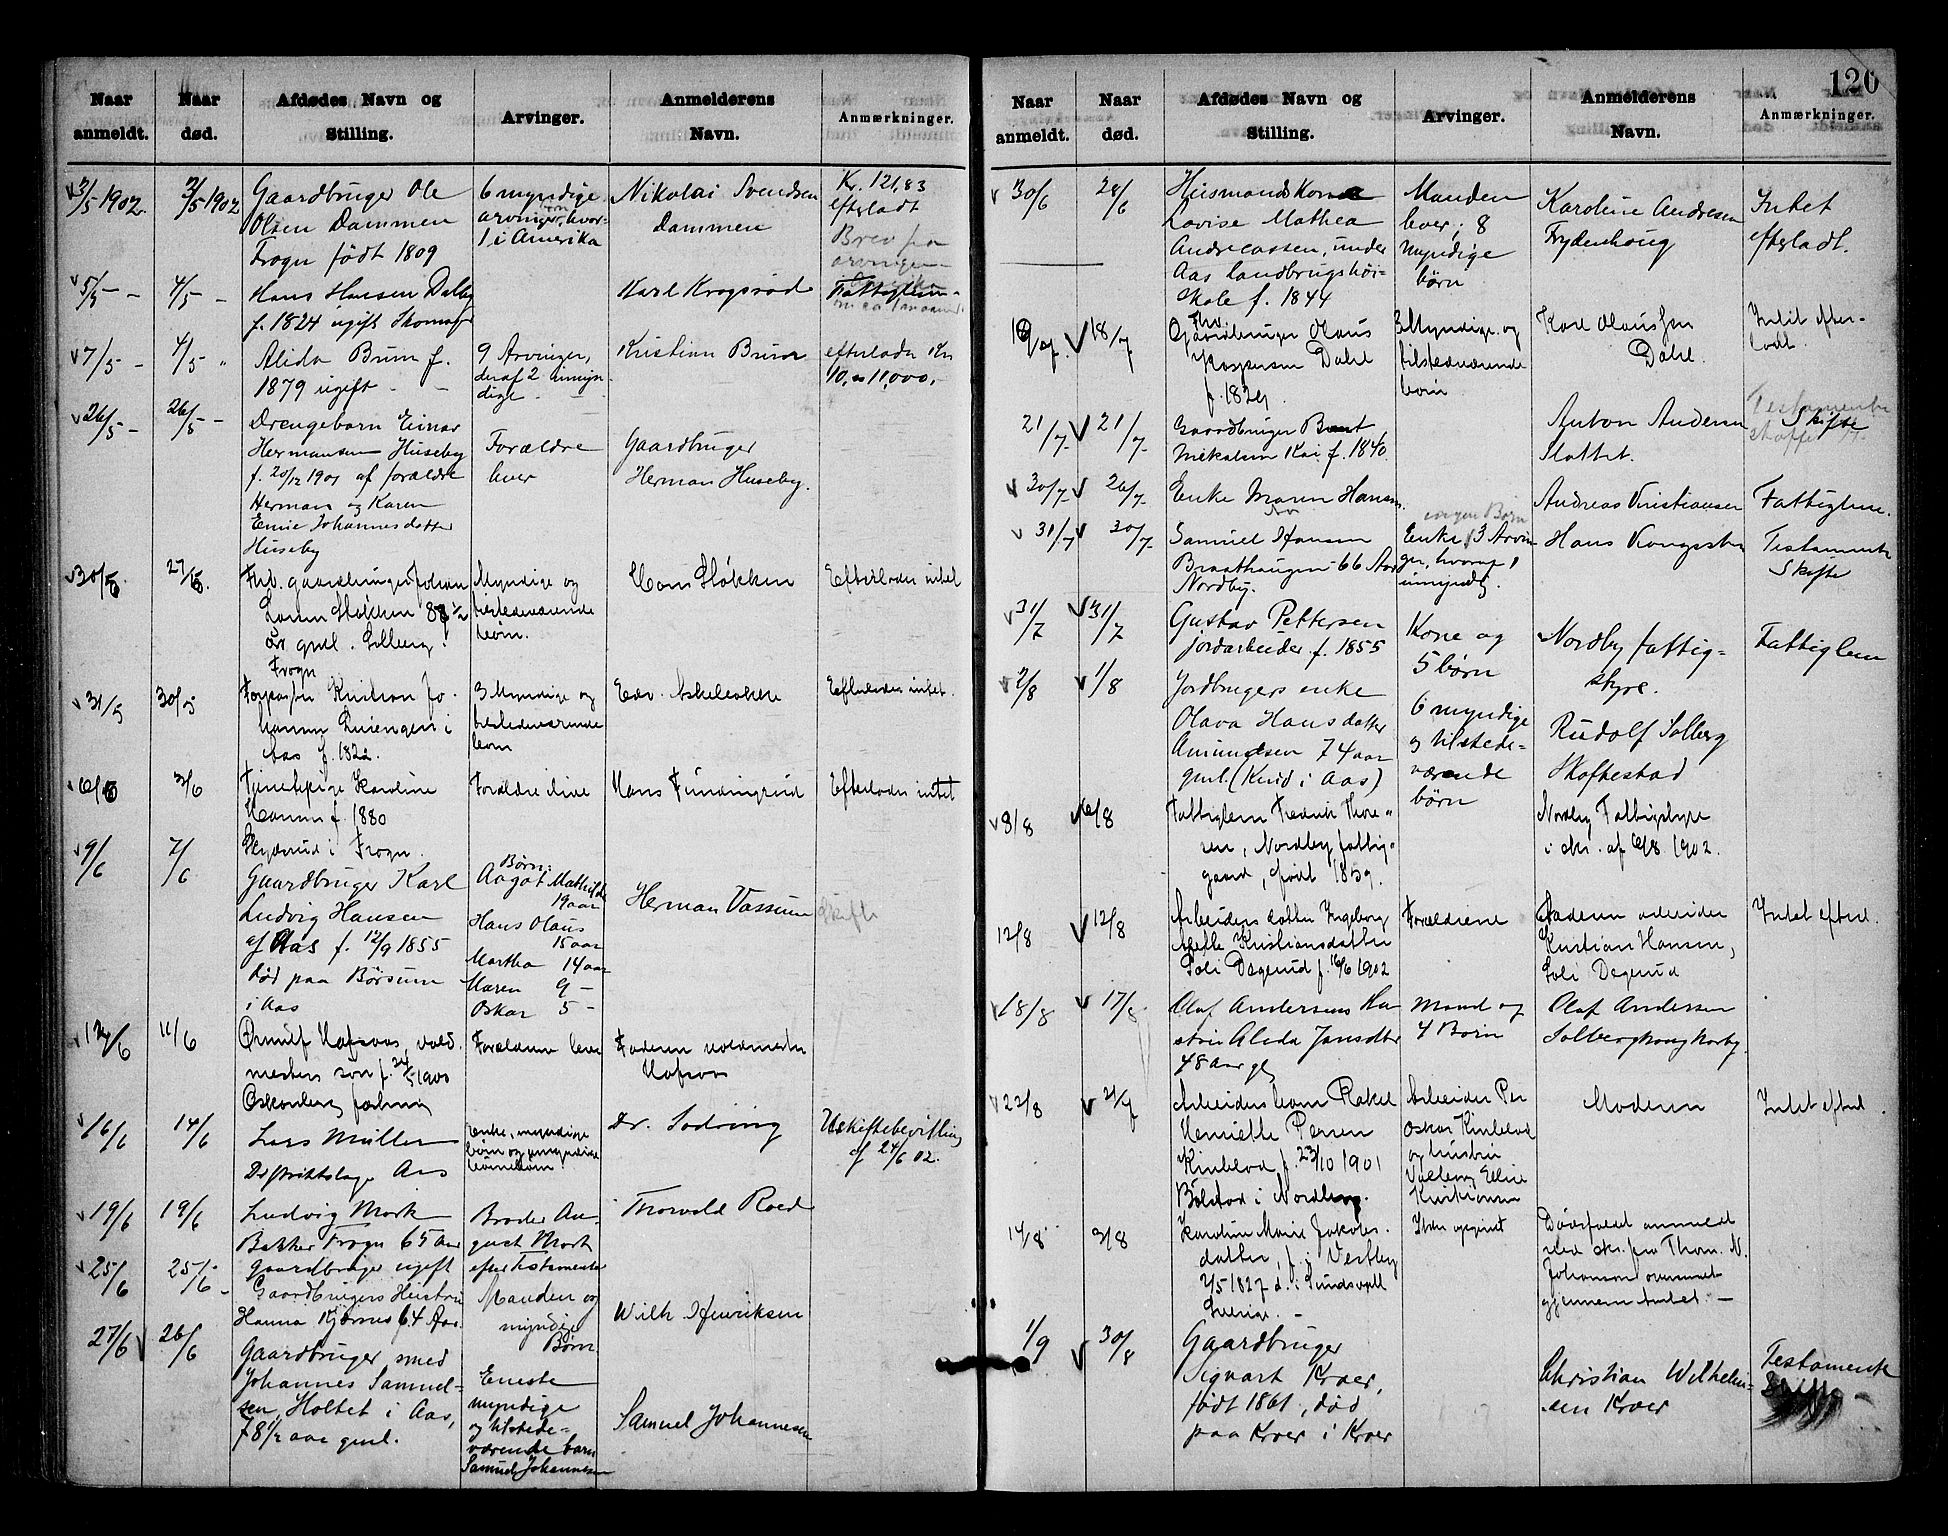 Naar anmeldt.
Naar død.
Afdødes Navn og Stilling.
Arvinger.
Anmelderens Navn.
Anmærkninger.
3/5 1902. 2/5 1902
Gaardbruger Ole
Olsen Dammen
Frogn født 1809
6 myndige
arvinger, hvor-
1 i Amerika
Nikolai Svendsen
Dammen
Kr. 121,83
efterladt
Brev fra
arvinger
5/5 - 4/5 -
Hans Hansen Dalby
f. 1824 ugift
Karl Krogsrød
Fattiglem
7/5 - 4/5 "
Alida Brum f.
1879 ugift -
9 Arvinger,
deraf 2 umyn-
dige.
Kristian Brum
efterlader Kr
10, à 11,000,-
26/5 - 26/5 -
Drengebarn Einar
Hermansen Huseby
f. 20/12 1901 af forældre
Herman og Karen
Emie Johannesdatter
Huseby
Forældre
lever
Gaardbruger
Herman Huseby.
30/5. 27/5.
Myndige og
tilstedeværende
børn.
Frogn
Efterlader intet
31/5 30/5
Aas f. 1822.
3 Myndige og
tilstedeværende
børn
Efterlader intet.
6/6 3/6
Tjenestepige Karoline
f. 1880
i Frogn.
Forældre ilive
Efterlader intet
9/6 7/6
Gaardbruger Karl
Ludvig Hansen
af Aas f. 12/9 1855
død paa Børsum
i Aas
Børn:
Aagot Mathilde
19 aar
Hans Olaus
15 aar
Martha 14 aar
Maren 9 -
Oskar 5 -
Herman Vassum
Skifte
12/6 11/6
Forældrene lever
16/6 14/6
Lars Müller
Distriktslæge Aas
Enke, myndige
børn og umyndige
børnebørn
Dr. Sodring
Uskiftebevilling
af 24/6 02.
19/6 19/6
Ludvig Mork
Bakker Frogn 65 Aar
gaardbruger ugift
Broder Au-
gust Mork
efter Testamente
Thorvald Roed
25/6 25/6 -
Gaardbrugers Hustru
Hanna Kjærnes 64 Aar
Manden og
myndige
Børn
Wilh. Henriksen
27/6 26/6
Gaardbruger smed
Johannes Samuel-
sen, Holtet i Aas,
78 1/2 aar gml.
Eneste
myndige
og tilstede-
værende barn
Samuel Johannesen
Samuel Johannesen
120
Naar anmeldt.
Naar død.
Afdødes Navn og Stilling.
Arvinger.
Anmelderens Navn.
Anmærkninger.
30/6 28/6
Husmandskone
Lovise Mathea
Andreassen, under
Aas landbrugshøi-
skole f. 1844
Manden
lever; 8
myndige
børn
Karoline Andresen
Frydenhoug
Intet
efterladt.
18/7
Gaardbruger Olaus
Kaspersen Dahl
f. 1829
3 Myndige og
tilstedeværende
børn
Karl Olaussen
Dahl.
Intet efter-
ladt.
21/7 21/7
Gaardbruger Bernt
Mikalsen Kai f. 1840.
Anton Andersen
Slottet.
Testamente
Skifte
30/7 26/7
Enke Maren Hansen
Andreas Kristiansen
Fattiglem.
31/7 30/7
Samuel Hansen
Braathaugen 66 Aar
Nordby.
ingen Børn
Enke, 3 Arvin-
ger, hvoraf 1
umyndig.
Testamente
Skifte
31/7 31/7
Gustav Pettersen
jordarbeider f. 1855
Kone og
5 børn
Nordby fattig-
styre.
Fattiglem
2/8 1/8
Jordbrugers enke
Olava Hansdatter
Amundsen 74 aar
gml. (Kvid i Aas)
6 myndige
og tilstede-
værende
børn
Rudolf Solberg
Skoftestad
8/8 6/8
Fattiglem Fredrik Thore-
sen, Nordby fattig-
gaard, født 1859.
Nordby Fattigstyre
i skr. af 6/8 1902.
12/8 12/8
Arbeiders datter Ingeborg
Kristiansdatter
f. 16/6 1902
Forældrene
Faderen arbeider
Kristian Hansen,
Intet efterl.
18/8 17/8
Olaf Andersens Hu-
stru Alida Jansdtr
48 Aar gl.
Mand og
4 Børn
Olaf Andersen
22/8
Arbeiders barn Rakel
Henriette
f. 23/10 1901
i Nordby.
Arbeider Per
Oskar
og hustru
Moderen
Intet efterl.
14/8 3/8
Karoline Marie Jakobs-
datter, f. i Vestby
2/5 1827 d. i Sundsvall
Sverige. -
Dødsfaldet anmeldt
ved skr. fra Thom. N.
Johanson oversendt
gjennem Amtet. -
1/9 30/8
Gaardbruger
Sigvart Kroer,
født 1861, død
paa Kroer i Kroer
Christian Wilhelm-
sen Kroer
Testamente